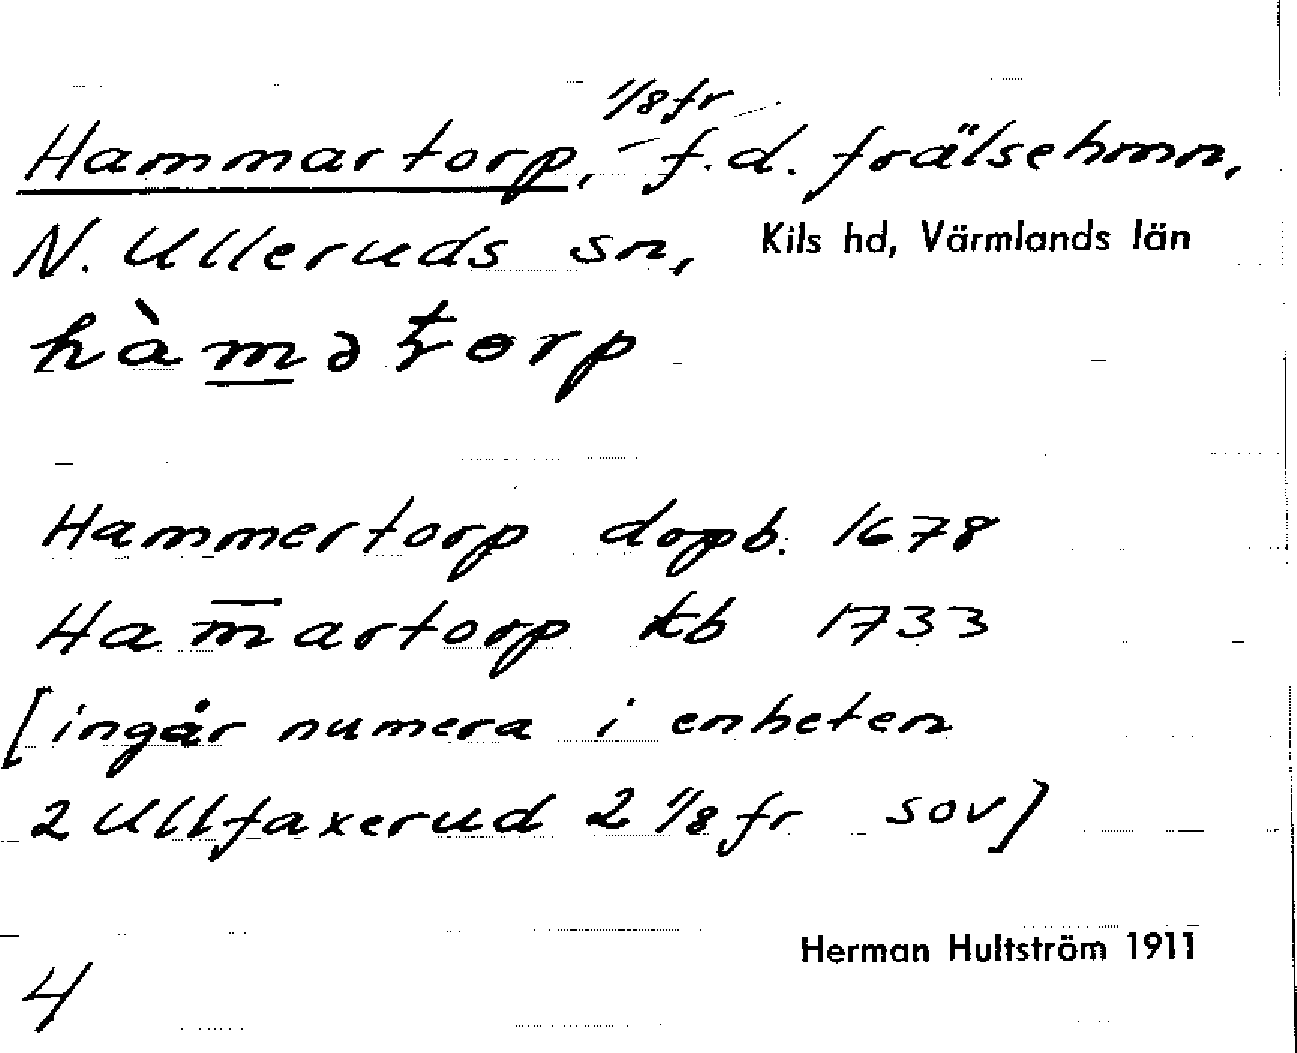 1/8 fr
Hammartorp, f.d. frälsehmn,
N. Ulleruds sn, Kils hd, Värmlands län
hàmətorp
Hammertorp dopb. 1678
Ham̄artorp kb 1733
[ingår numera i enheten
2 Ullfaxerud 2 1/8 fr sov]
Herman Hultström 1911
4